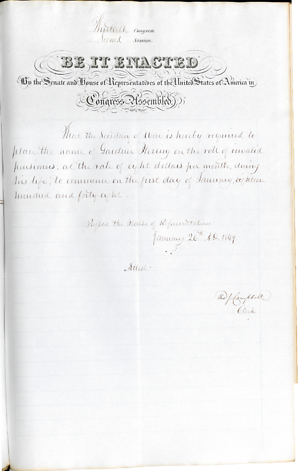 Thirtieth Congress
Second Session
BE IT ENACTED
By the Senate and House of Representatives of the United States of America in
Congress Assembled,
That the Secretary of War is hereby required to
place the name of Gardner Herring on the roll of invalid
pensioners, at the rate of eight dollars per month, during
his life, to commence on the first day of January, eighteen
hundred and forty-eight.
Passed the House of Representatives
January 26th AD. 1849.
Attest
Campbell
Clerk